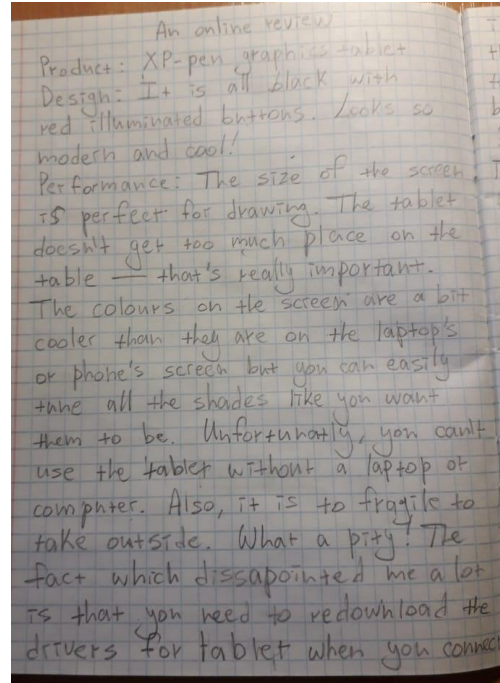 An online review
Product: XP-pen graphics tablet
Design: It is all black with
red illuminated buttons. Looks so
modern and cool!
Performance: The size of the screen
is perfect for drawing. The tablet
doesn't get too much place on the
table — that's really important.
The colours on the screen are a bit
cooler than they are on the laptop's
or phone's screen but you can easily
tune all the shades like you want
them to be. Unfortunatly, you can't
use the tablet without a laptop or
computer. Also, it is to fragile to
take outside. What a pity! The
fact which dissapointed me a lot
is that you need to redownload the
drivers for tablet when you connec